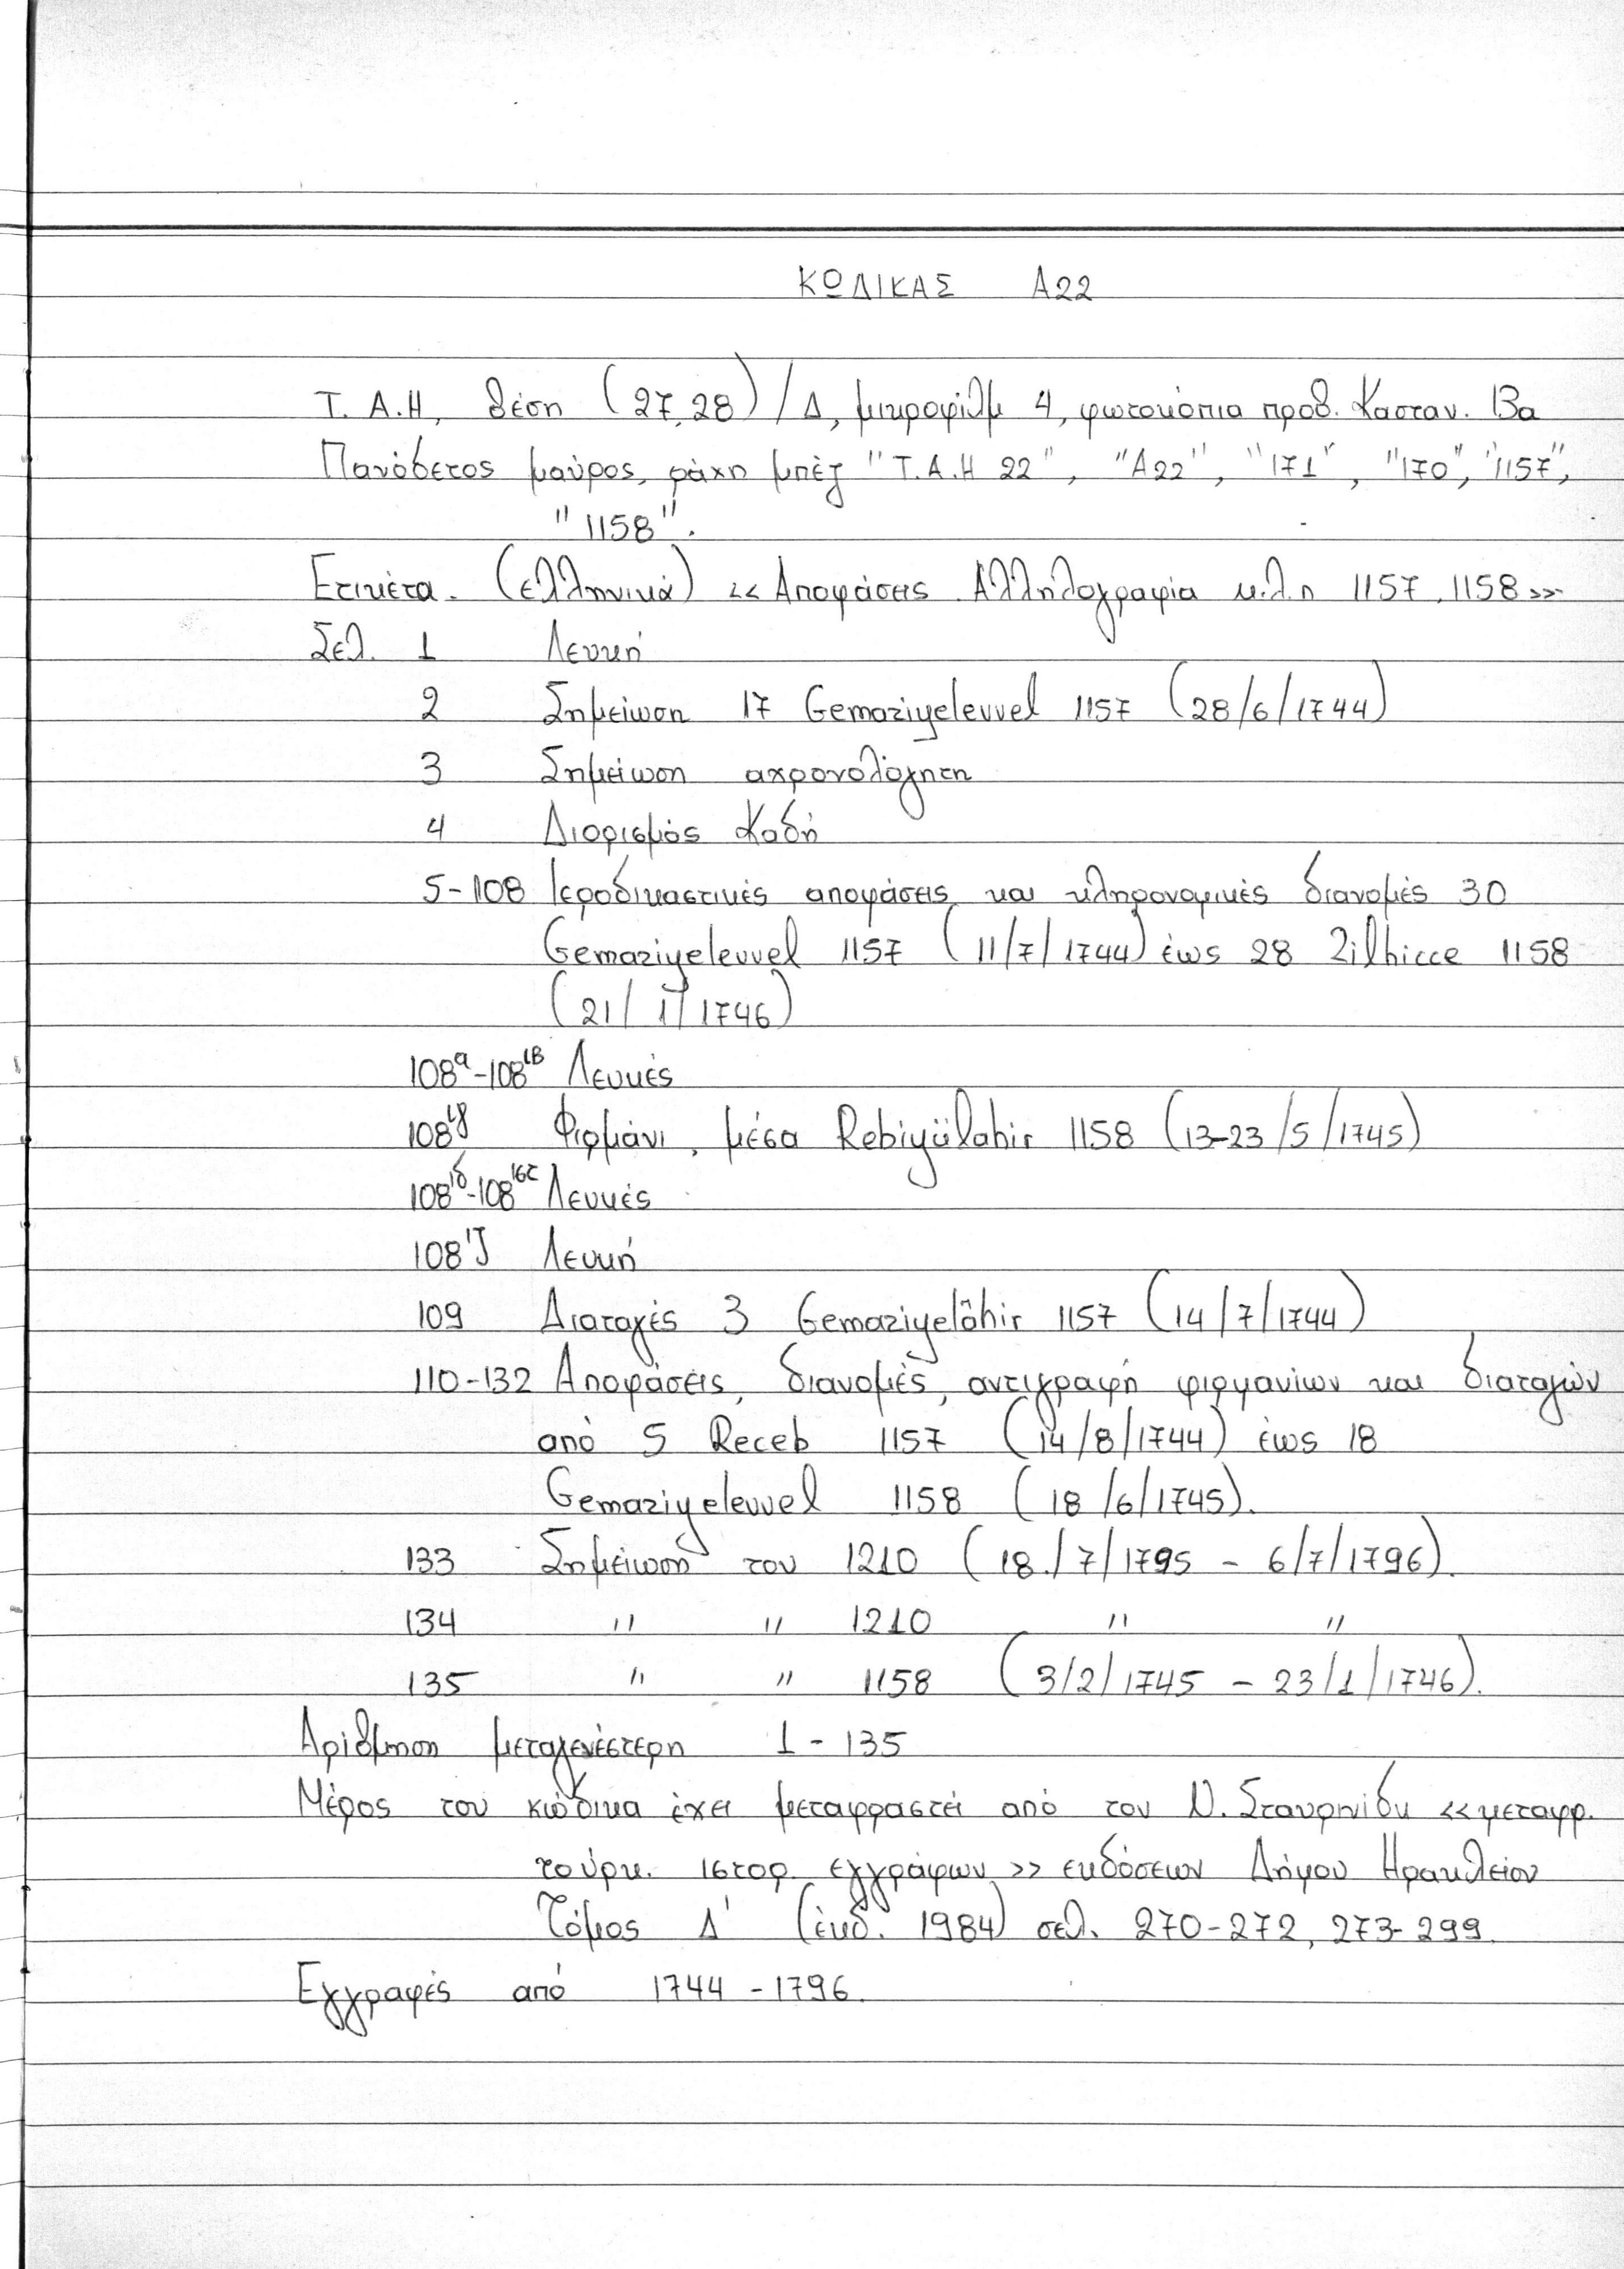 ΚΩΔΙΚΑΣ Α22
Τ.Α.Η, θέση (27,28)/Δ, μικροφίλμ 4, φωτοκόπια προθ. Κασταν. 13α
Πανόδετος μαύρος, ράχη μπέζ "Τ.Α.Η 22", "Α22", "171", "170", "1157",
"1158".
Ετικέτα. (ελληνικά) «Αποφάσεις. Αλληλογραφία κ.λ.π 1157, 1158»
Σελ. 1 Λευκή
2 Σημείωση 17 Gemaziyelevvel 1157 (28/6/1744)
3 Σημείωση αχρονολόγητη
4 Διορισμός Καδή
5-108 Ιεροδικαστικές αποφάσεις και κληρονομικές διανομές 30
Gemaziyelevvel 1157 (11/7/1744) έως 28 Zilhicce 1158
(21/1/1746)
108α-108ιβ Λευκές
108ιγ Φιρμάνι, μέσα Rebiyülahir 1158 (13-23/5/1745)
108ιδ-108ιστ Λευκές
108ιζ Λευκή
109 Διαταγές 3 Gemaziyelâhir 1157 (14/7/1744)
110-132 Αποφάσεις, διανομές, αντιγραφή φιρμανίων και διαταγών
από 5 Receb 1157 (14/8/1744) έως 18
Gemaziyelevvel 1158 (18/6/1745).
133 Σημείωση του 1210 (18/7/1795 - 6/7/1796).
134 " " 1210 " "
135 " " 1158 (3/2/1745 - 23/1/1746).
Αρίθμηση μεταγενέστερη 1-135
Μέρος του κώδικα έχει μεταφραστεί από τον Ν. Σταυρινίδη «μεταφρ.
τούρκ. ιστορ. εγγράφων» εκδόσεων Δήμου Ηρακλείου
Τόμος Δ' (έκδ. 1984) σελ. 270-272, 273-299.
Εγγραφές από 1744-1796.